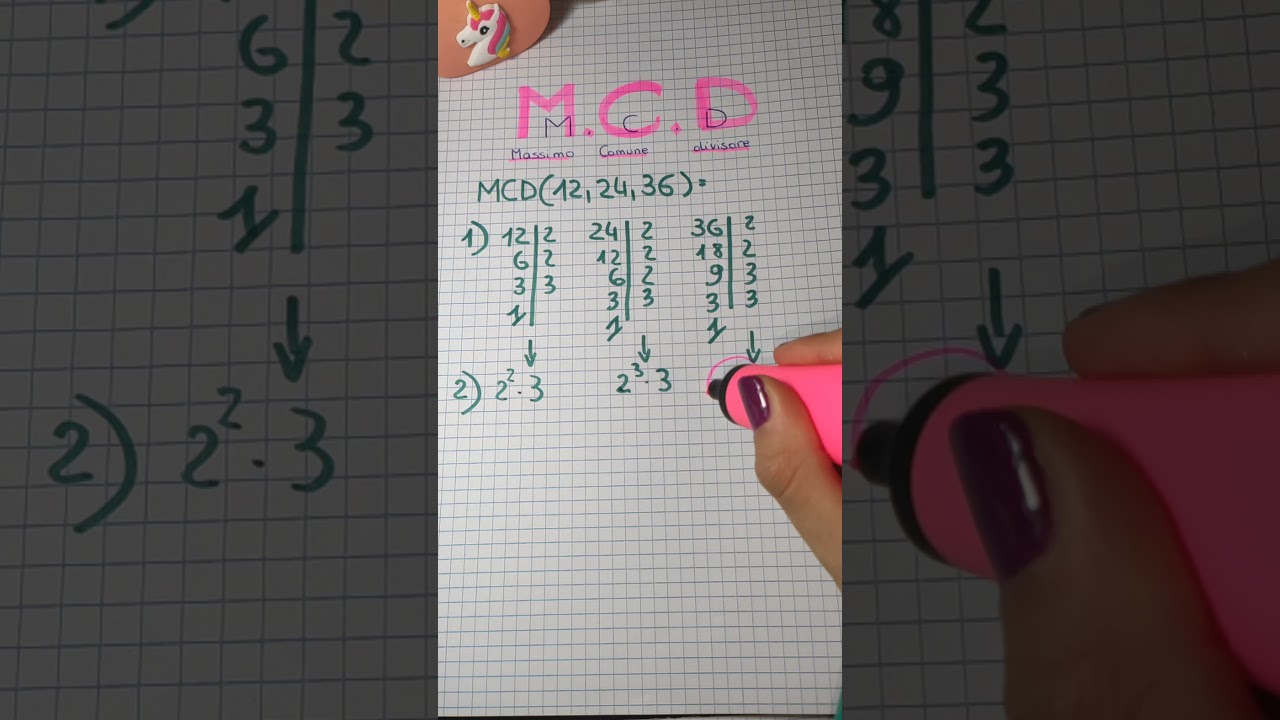 M.C.D
M C D
Massimo Comune divisore
MCD(12,24,36)=
1) 12|2 24|2 36|2
6|2 12|2 18|2
3|3 6|2 9|3
1| 3|3 3|3
1 1
↓ ↓ ↓
2) 2²·3 2³·3